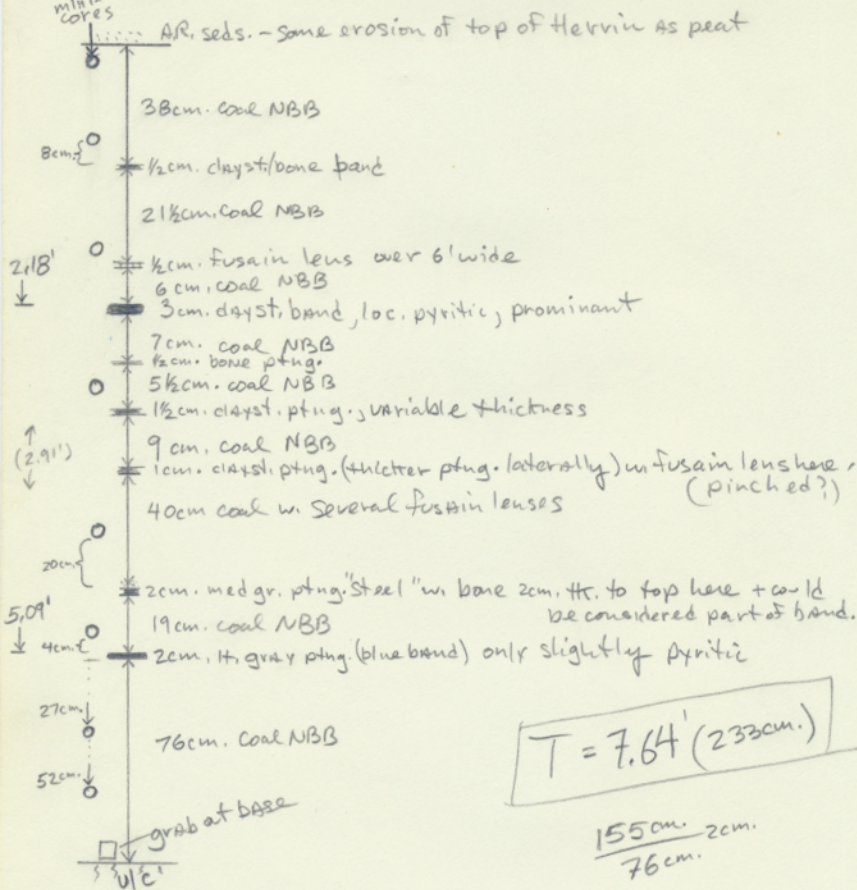 mini cores
A.R. seds. - some erosion of top of Herrin As peat
38cm. coal NBB
8cm.
1/2cm. clayst/bone band
21 1/2cm. coal NBB
2.18'
1/2cm. fusain lens over 6' wide
6 cm. coal NBB
3cm. clayst. band, loc. pyritic, prominant
7cm. coal NBB
1/2cm. bone ptng.
5 1/2cm. coal NBB
1 1/2cm. clayst. ptng., variable thickness
(2.91')
9 cm. coal NBB
1cm. clayst. ptng. (thicker ptng. laterally) w. fusain lens here.
(pinched?)
40cm coal w. several fusain lenses
20cm.
2cm. med gr. ptng. "steel" w. bone 2cm. tk. to top here + could
be considered part of band.
5.09'
19cm. coal NBB
4cm.
2cm. lt. gray ptng. (blue band) only slightly pyritic
27cm.
76cm. coal NBB
T = 7.64' (233cm.)
52cm.
155cm.
2cm.
76cm.
grab at base
u/c'